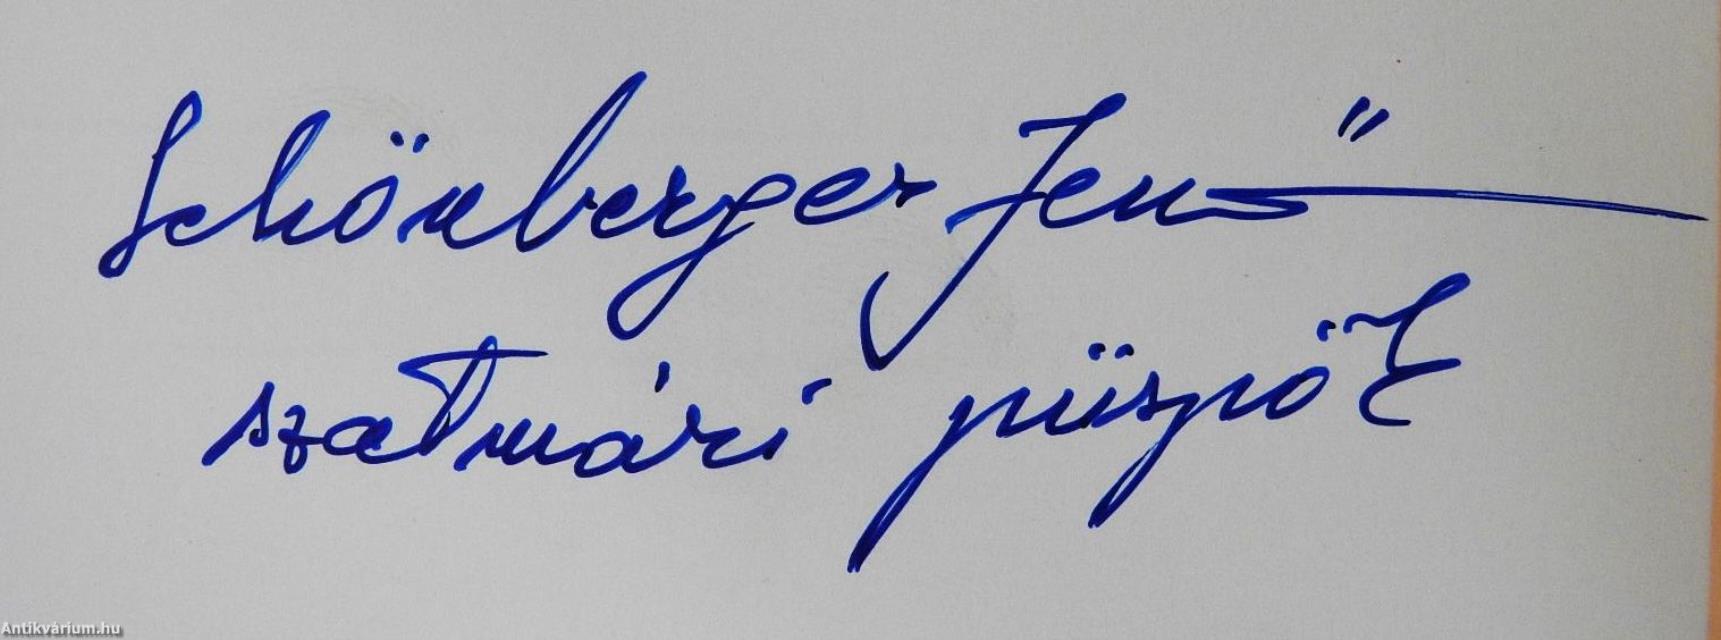 Schönberger Jenő
szatmári püspök
Antikvárium.hu